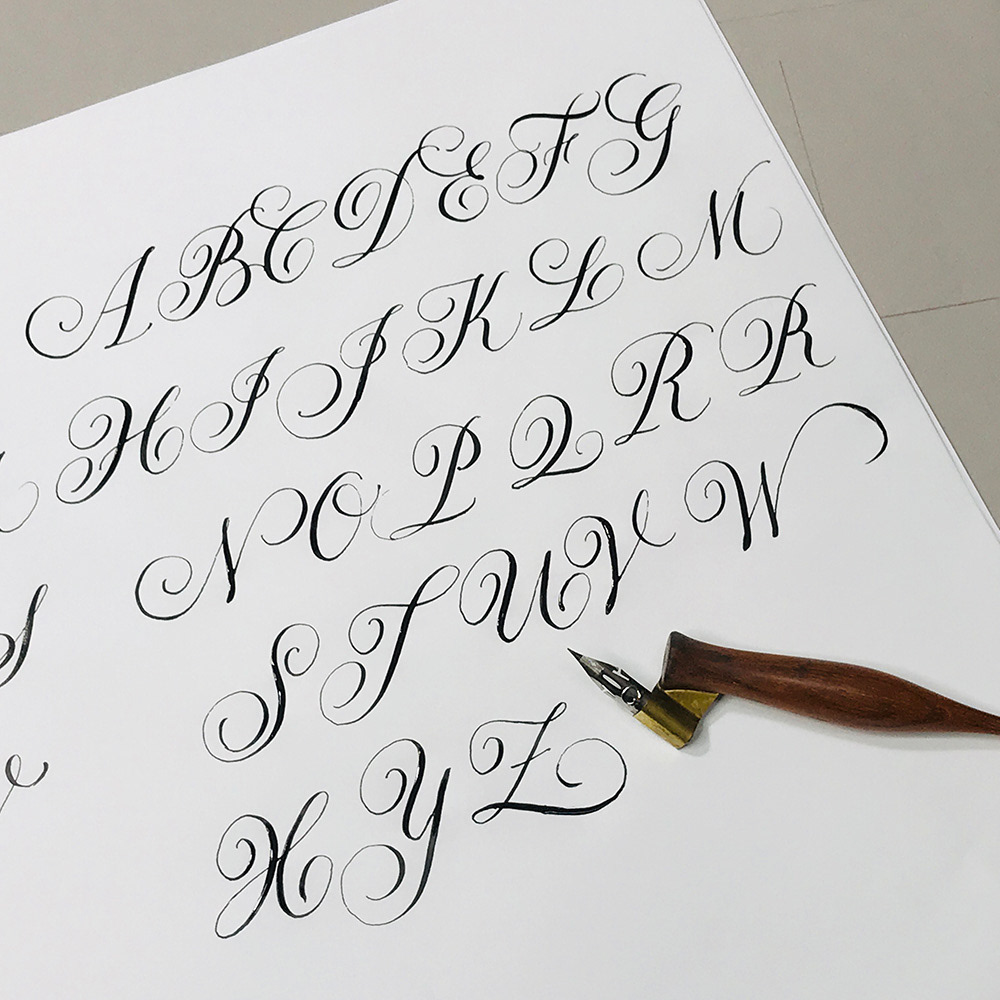 A B C D E F G
H I J K L M
N O P Q R R
S T U V W
X Y Z